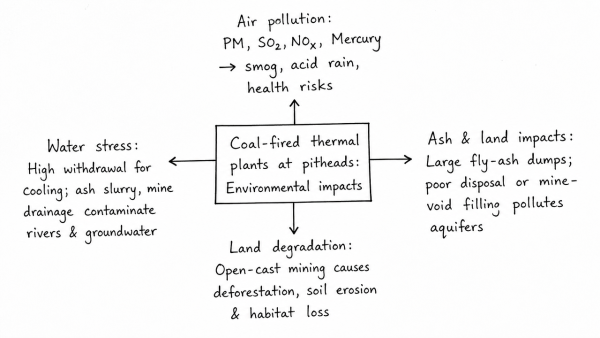 Air pollution:
PM, SO₂, NOₓ, Mercury
→ smog, acid rain,
health risks
Water stress:
High withdrawal for
cooling; ash slurry, mine
drainage contaminate
rivers & groundwater
Coal-fired thermal
plants at pitheads:
Environmental impacts
Ash & land impacts:
Large fly-ash dumps;
poor disposal or mine-
void filling pollutes
aquifers
Land degradation:
Open-cast mining causes
deforestation, soil erosion
& habitat loss